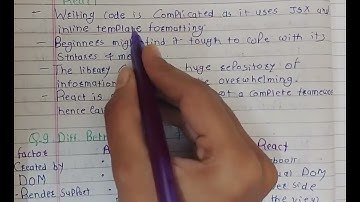 - Writing code is Complicated as it uses JSX and
inline template formatting.
- Beginners might find it tough to cope with its
Syntaxes & me
- The library huge repository of
information overwhelming.
- React is ot a complete framewo
hence Cal
Q.9 Diff. Bet
factor A React
Created by
DOM ual DOM
- Render Support er side
the view